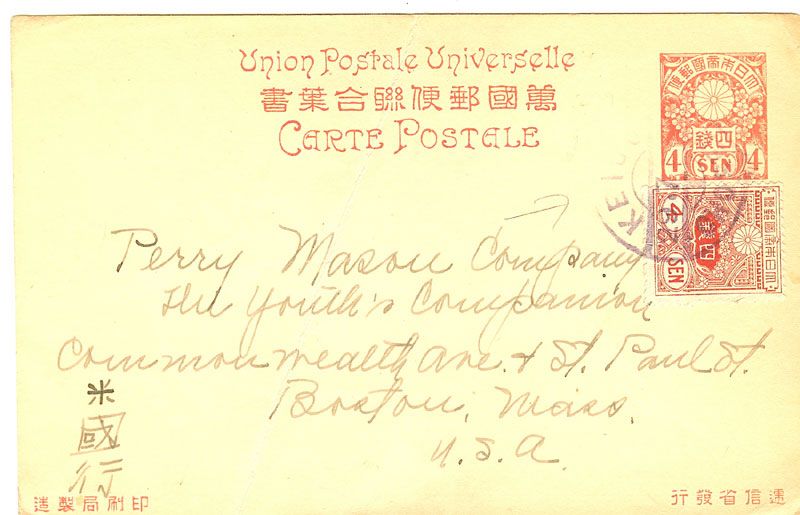 Union Postale Universelle
書葉合聯便郵國萬
CARTE POSTALE
便郵國帝本日大
錢四
4 SEN 4
KEIJO
大日本帝國郵便
四錢
4 SEN
Perry Mason Company
The Youth's Companion
Commonwealth Ave. & St. Paul St.
Boston, Mass.
U.S.A.
米國行
造製局刷印
行發省信遞